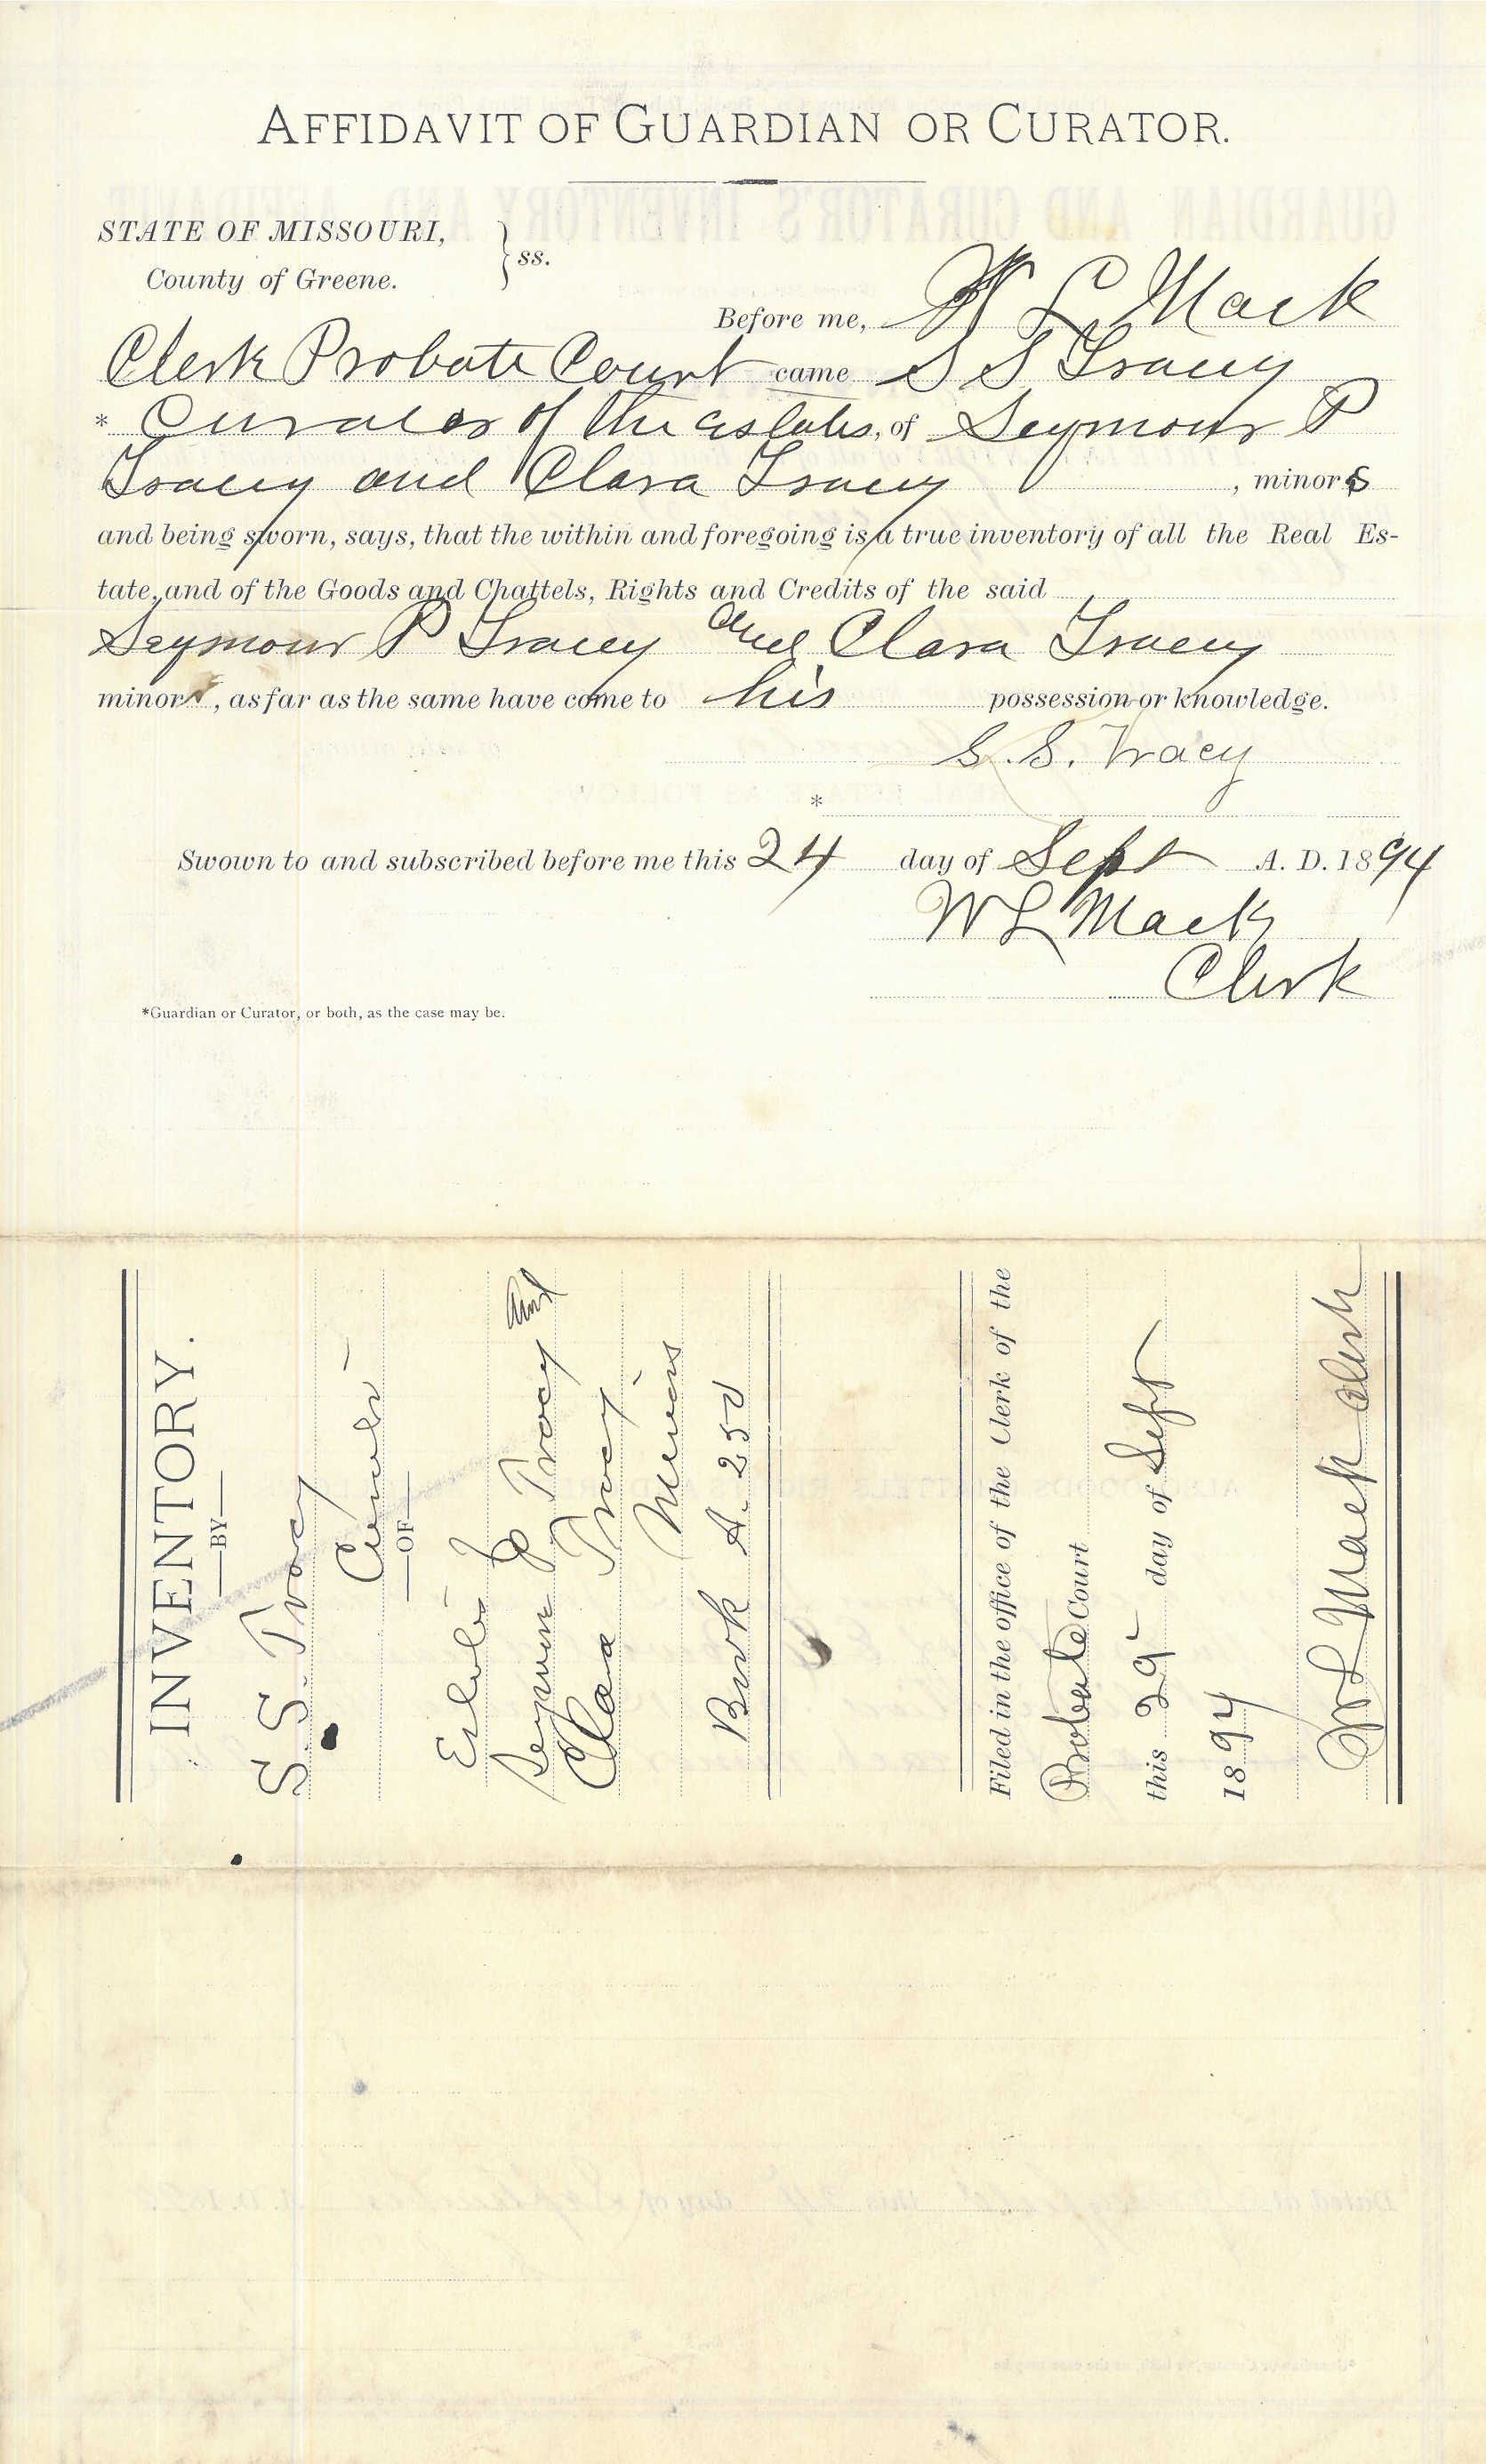 AFFIDAVIT OF GUARDIAN OR CURATOR.
STATE OF MISSOURI,
County of Greene. } ss.
Before me, W L Mack
Clerk Probate Court came S S Tracy
* Curator of the estates, of Seymour P
Tracy and Clara Tracy , minors
and being sworn, says, that the within and foregoing is a true inventory of all the Real Es-
tate, and of the Goods and Chattels, Rights and Credits of the said
Seymour P Tracy and Clara Tracy
minors, as far as the same have come to his possession or knowledge.
S. S. Tracy
*
Swown to and subscribed before me this 24 day of Sept A. D. 1894
W L Mack
Clerk
*Guardian or Curator, or both, as the case may be.
INVENTORY.
—BY—
S. S. Tracy
Curator
—OF—
Seymour P Tracy and
Clara Tracy
Minors
Book A. 250
Filed in the office of the Clerk of the
Probate Court
this 29 day of Sept
1894
W L Mack Clerk